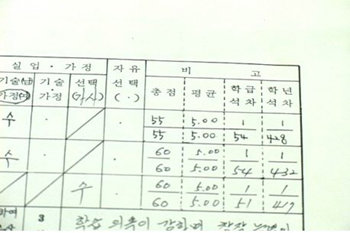 실업·가정 자유 비 고
기술(남) 기술 선택 선택 총점 평균 학급 학년
가정(여) 가정 (가사) (·) 석차 석차
수 · · 55 5.00 1 1
55 5.00 54 428
수 · · 60 5.00 1 1
60 5.00 54 432
수 · 60 5.00 1 1
60 5.00 51 419
하여 3 학습 의욕이 강하며